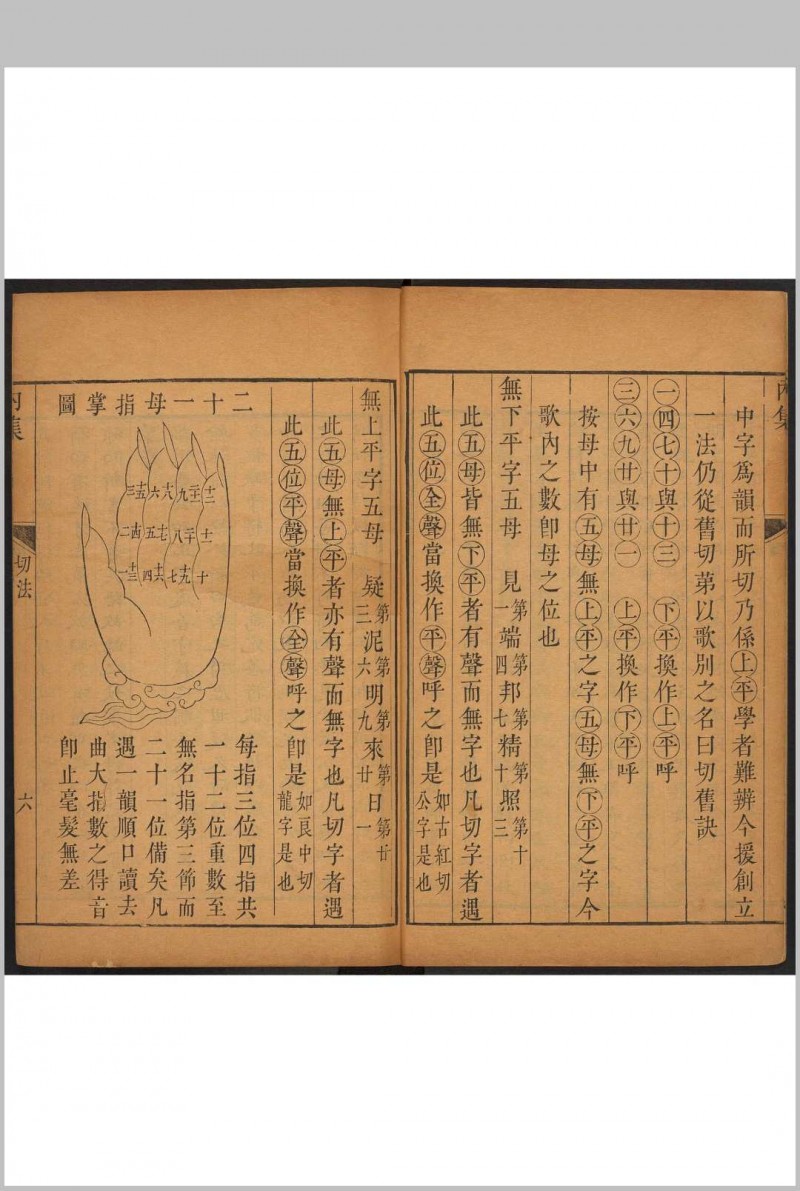 丙集
中字爲韻而所切乃係上平學者難辨今援創立
一法仍從舊切第以歌別之名曰切舊訣
一四七十與十三　下平換作上平呼
三六九廿與廿一　上平換作下平呼
按母中有五母無上平之字五母無下平之字今
歌內之數卽母之位也
無下平字五母　見第一端第四邦第七精第十照第十三
此五母皆無下平者有聲而無字也凡切字者遇
此五位全聲當換作平聲呼之卽是如古紅切公字是也
無上平字五母　疑第三泥第六明第九來第廿日第廿一
此五母無上平者亦有聲而無字也凡切字者遇
此五位平聲當換作全聲呼之卽是如良中切龍字是也
二十一母指掌圖
三 十五 六 十八 九 二十一 十二
二 十四 五 十七 八 二十 十一
一 十三 四 十六 七 十九 十
每指三位四指共
一十二位重數至
無名指第三節而
二十一位備矣凡
遇一韻順口讀去
曲大指數之得音
卽止毫髮無差
丙集
切法
六